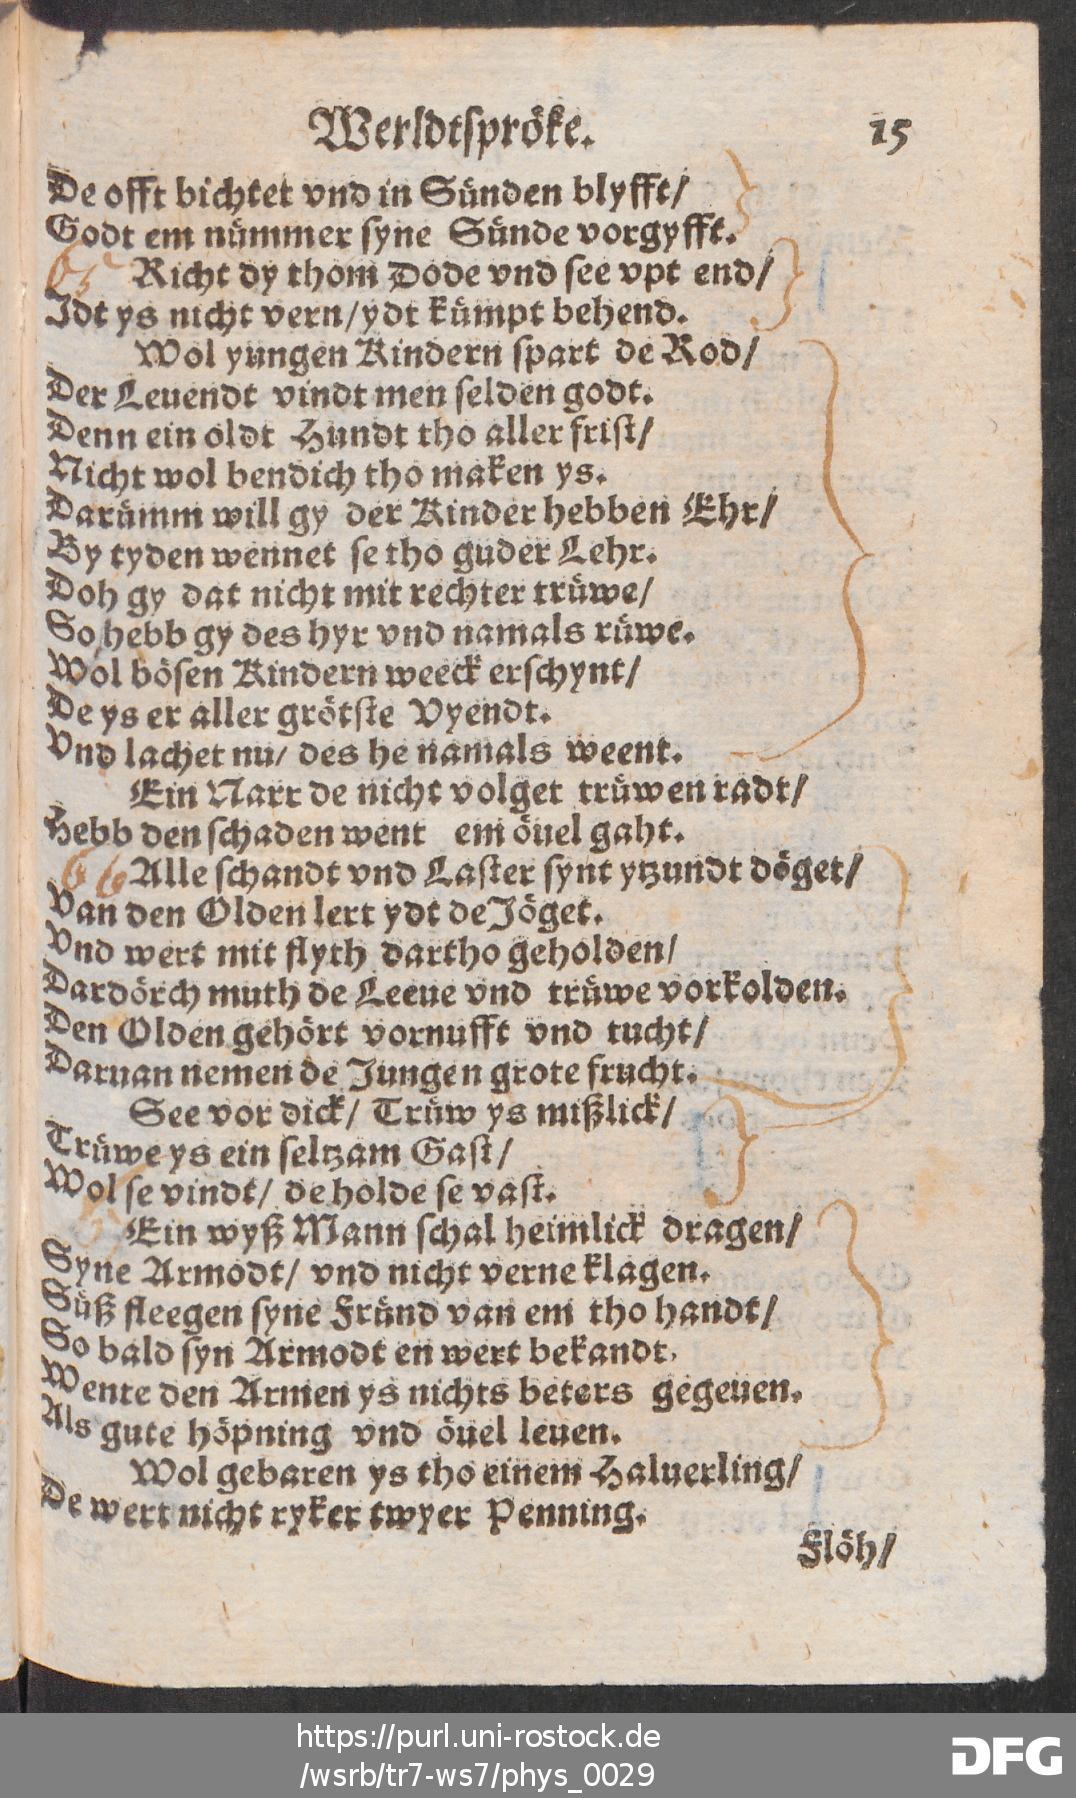 Werldtspröke. 15
De offt bichtet vnd in Sünden blyfft/
Godt em nümmer syne Sünde vorgyfft.
65 Richt dy thom Dode vnd see vpt end/
Idt ys nicht vern/ydt kümpt behend.
Wol yungen Kindern spart de Rod/
Der Leuendt vindt men selden godt.
Denn ein oldt Hundt tho aller frist/
Nicht wol bendich tho maken ys.
Darümm will gy der Kinder hebben Ehr/
By tyden wennet se tho guder Lehr.
Doh gy dat nicht mit rechter trüwe/
So hebb gy des hyr vnd namals rüwe.
Wol bösen Kindern weeck erschynt/
De ys er aller grötste Vyendt.
Vnd lachet nu/ des he namals weent.
Ein Narr de nicht volget trüwen radt/
Hebb den schaden went em öuel gaht.
66 Alle schandt vnd Laster synt ytzundt döget/
Van den Olden lert ydt de Jöget.
Vnd wert mit flyth dartho geholden/
Dardörch muth de Leeue vnd trüwe vorkolden.
Den Olden gehört vornufft vnd tucht/
Daruan nemen de Jungen grote frucht.
See vor dick/ Trüw ys mißlick/
Trüwe ys ein seltzam Gast/
Wol se vindt/ de holde se vast.
Ein wyß Mann schal heimlick dragen/
Syne Armodt/ vnd nicht verne klagen.
Süß fleegen syne Fründ van em tho handt/
So bald syn Armodt en wert bekandt.
Wente den Armen ys nichts beters gegeuen.
Als gute höpning vnd öuel leuen.
Wol gebaren ys tho einem Haluerling/
De wert nicht ryker twyer Penning.
Flöh/
https://purl.uni-rostock.de
/wsrb/tr7-ws7/phys_0029
DFG